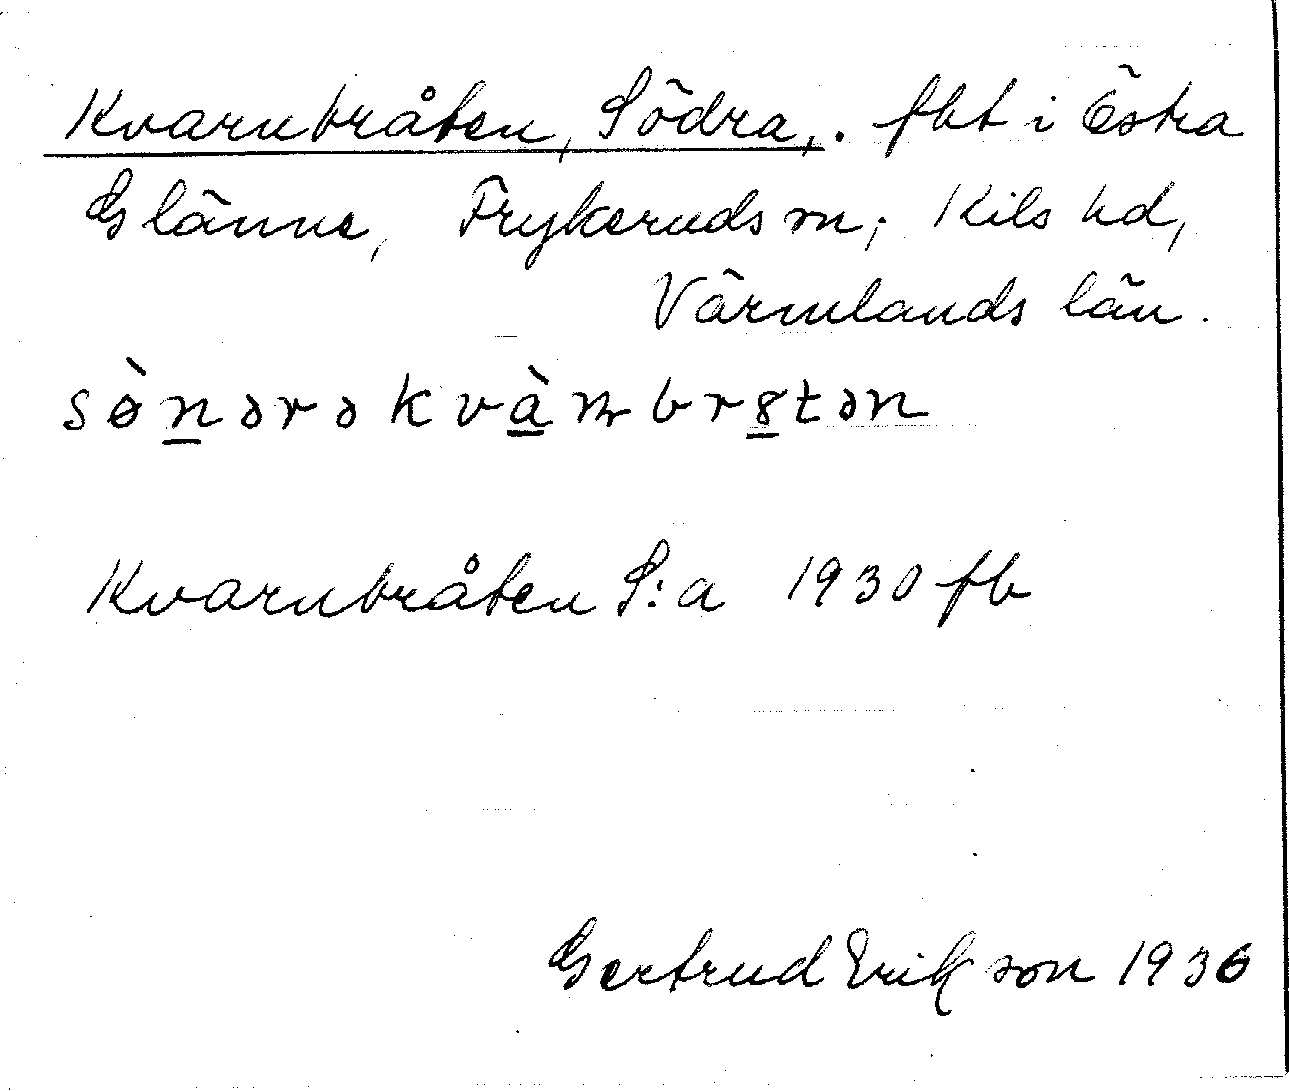 Kvarnbråten, Södra,. fbt i Östra
Glänne, Frykeruds sn; Kils hd,
Värmlands län.
sø̀nərə kvàmbr8tən
Kvarnbråten S:a 1930 fb
Gertrud Erikson 1936